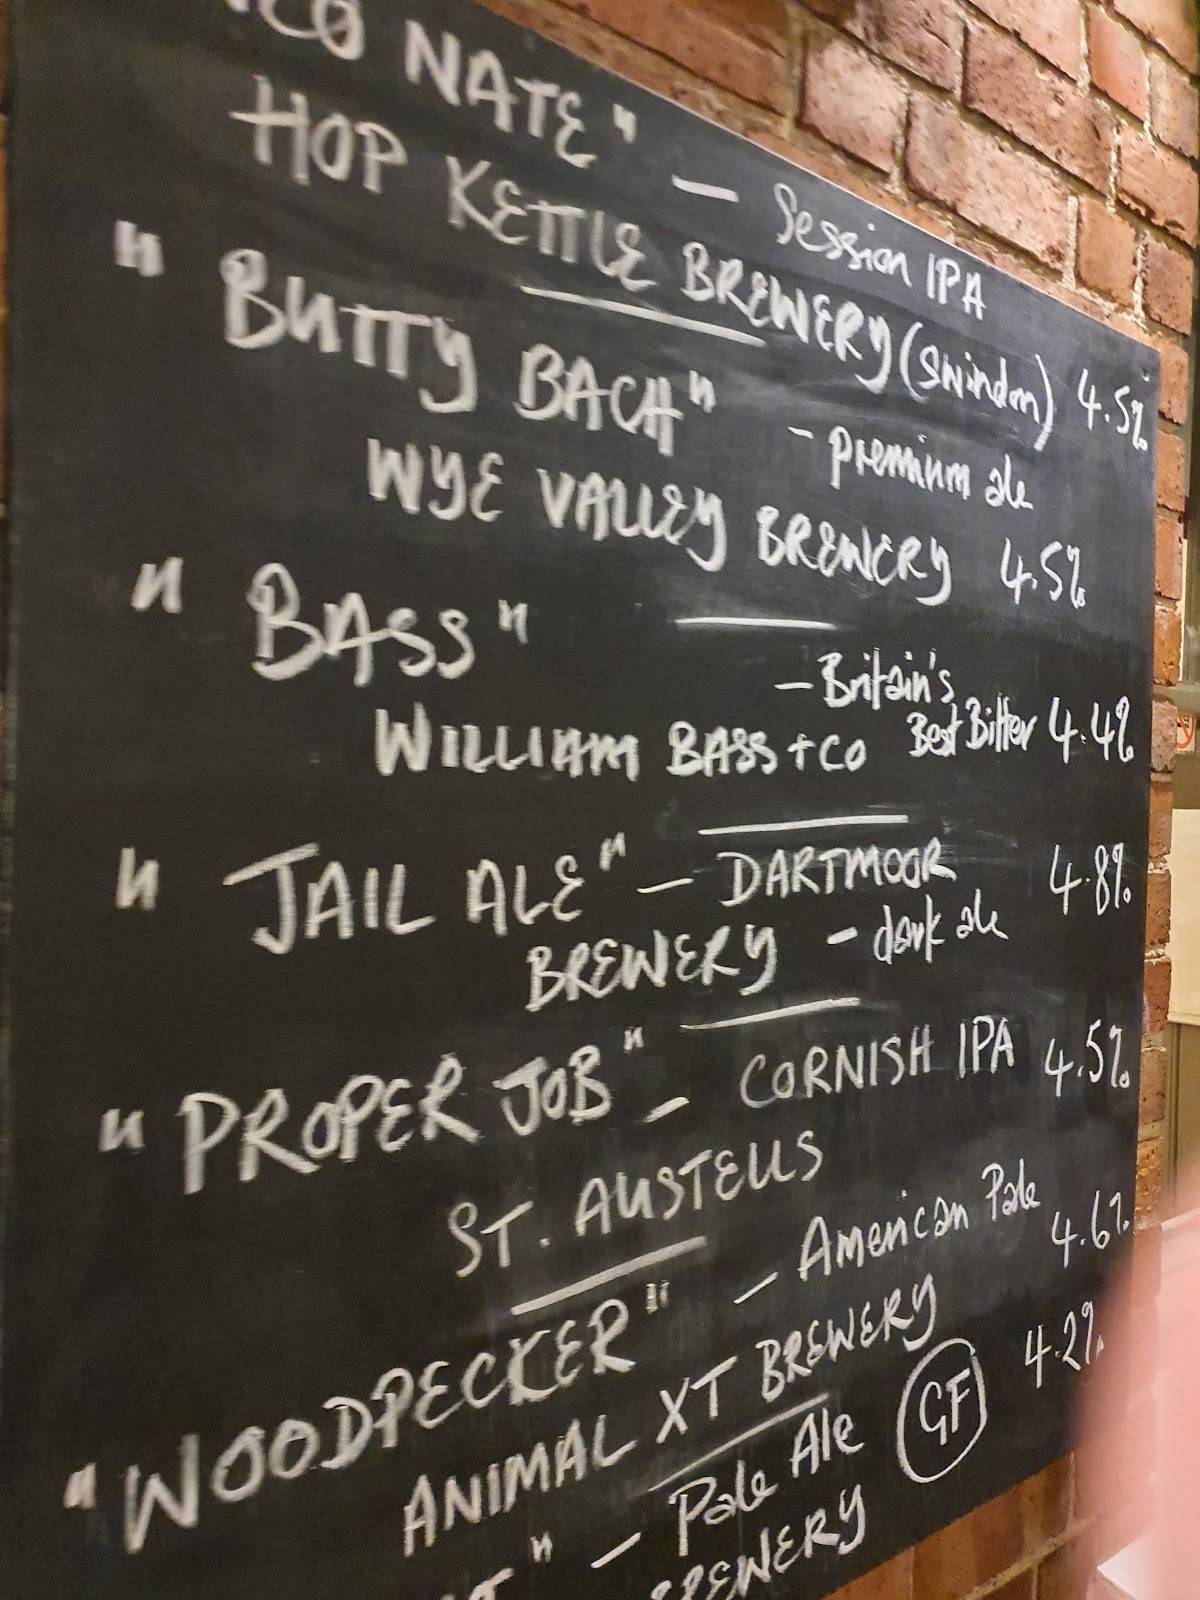 NATE" - Session IPA
HOP KETTLE BREWERY (Swindon) 4.5%
"BUTTY BACH" - premium ale
WYE VALLEY BREWERY 4.5%
"BASS" - Britain's
WILLIAM BASS + CO Best Bitter 4.4%
"JAIL ALE" - DARTMOOR 4.8%
BREWERY - dark ale
"PROPER JOB" - CORNISH IPA 4.5%
ST. AUSTELLS
"WOODPECKER" - American Pale 4.6%
ANIMAL XT BREWERY
" - Pale Ale GF 4.2%
BREWERY